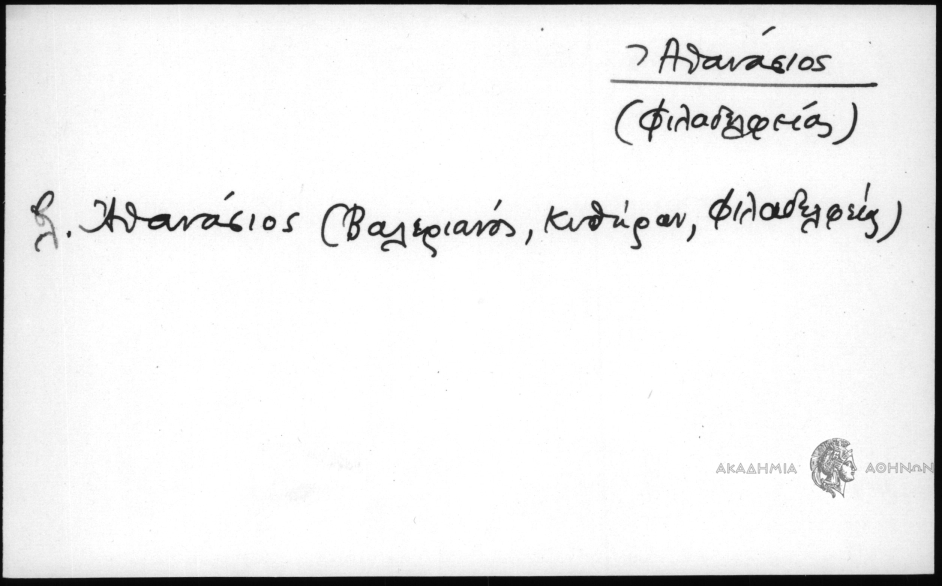 Ἀθανάσιος
(Φιλαδελφείας)
βλ. Ἀθανάσιος (Βαλεριανός, Κυθήρων, Φιλαδελφείας)
ΑΚΑΔΗΜΙΑ ΑΘΗΝΩΝ